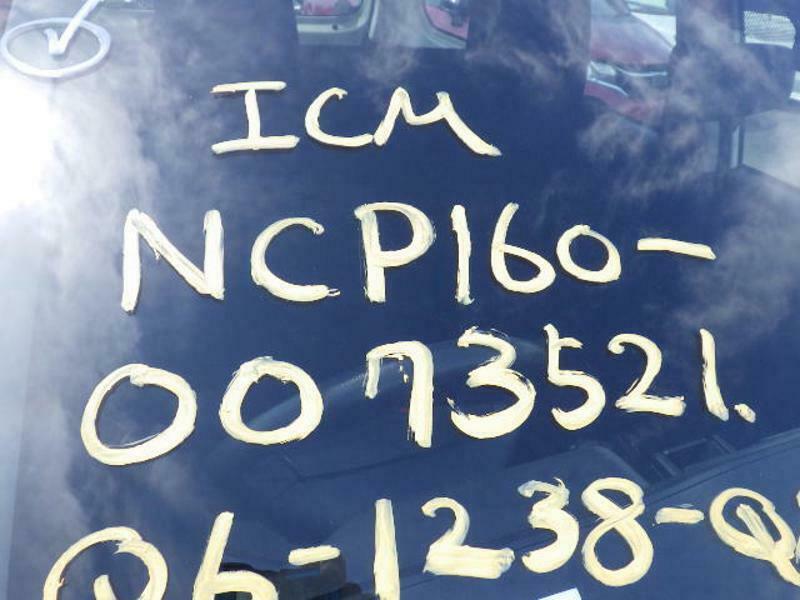 ICM
NCP160-
0073521.
Q6-1238-Q